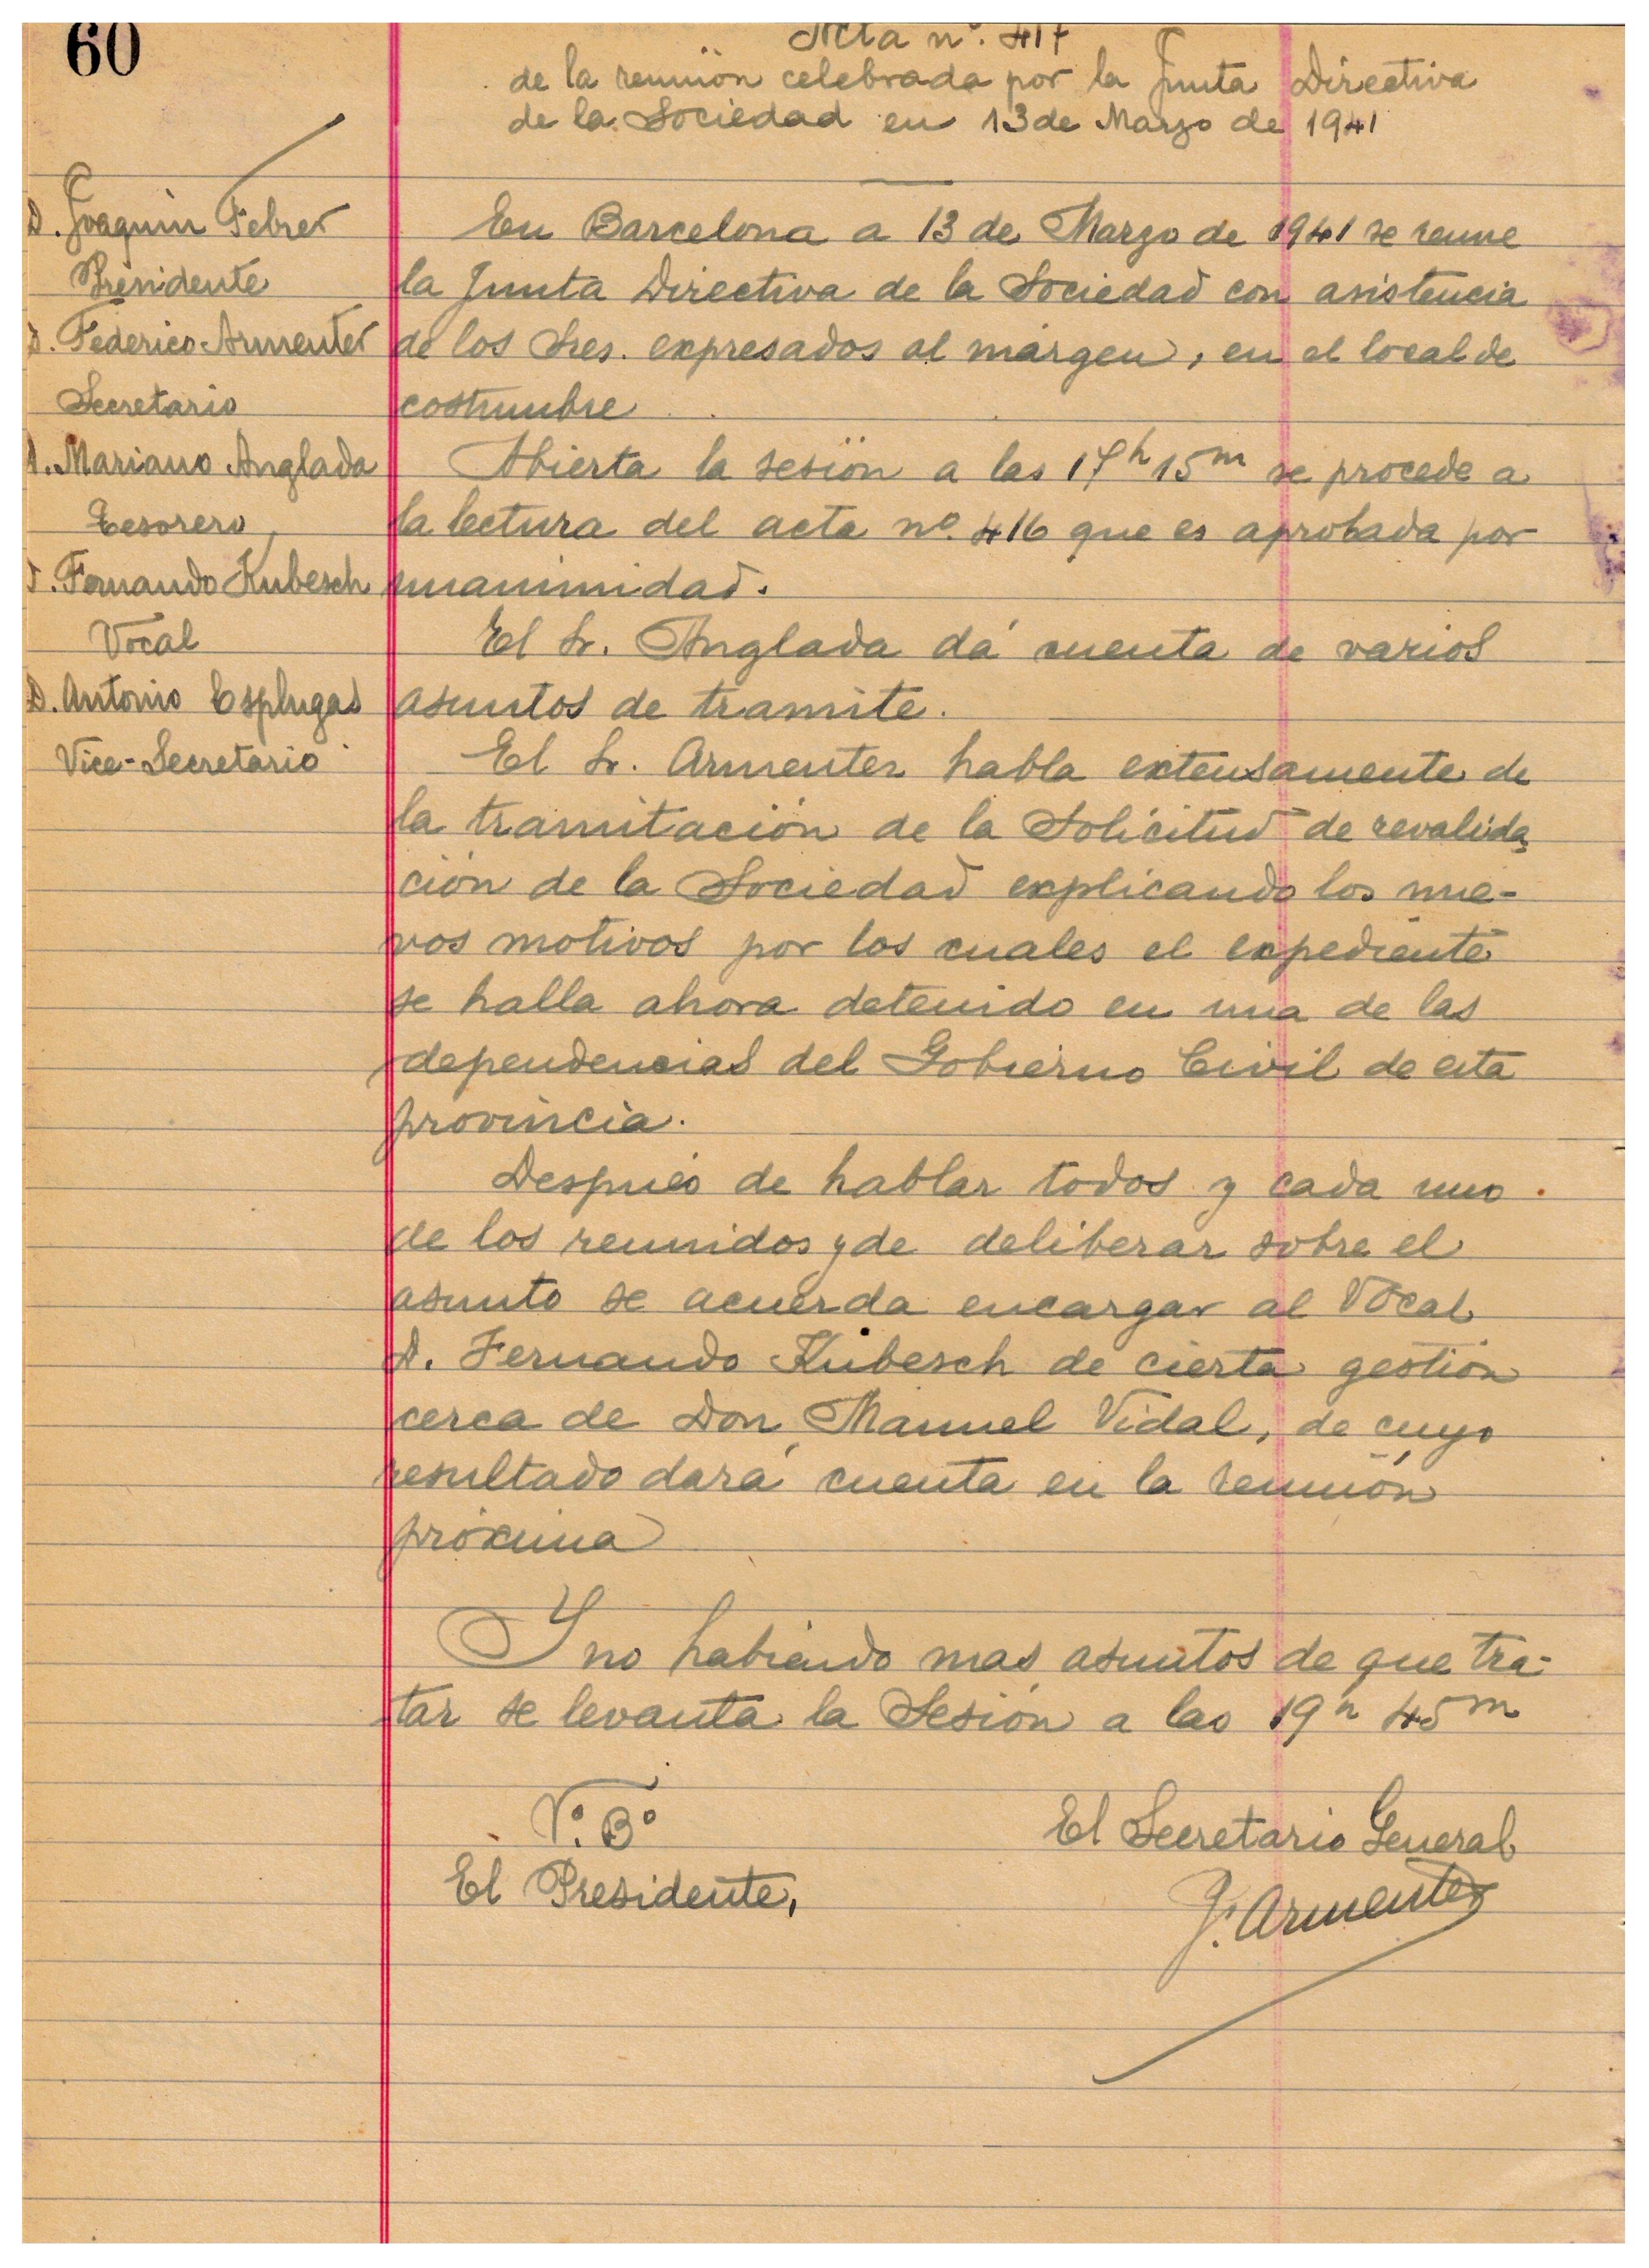 60
Acta nº. 417
de la reunión celebrada por la Junta Directiva
de la Sociedad en 13 de Marzo de 1941
D. Joaquin Febrer
Presidente
D. Federico Armenter
Secretario
D. Mariano Anglada
Tesorero
D. Fernando Kubesch
Vocal
D. Antonio Esplugas
Vice-Secretario
En Barcelona a 13 de Marzo de 1941 se reune
la Junta Directiva de la Sociedad con asistencia
de los Sres. expresados al márgen, en el local de
costumbre
Abierta la sesión a las 17h 15m se procede a
la lectura del acta nº. 416 que es aprobada por
unanimidad.
El Sr. Anglada dá cuenta de varios
asuntos de tramite.
El Sr. Armenter habla extensamente de
la tramitación de la Solicitud de revalida
ción de la Sociedad explicando los nue-
vos motivos por los cuales el expediente
se halla ahora detenido en una de las
dependencias del Gobierno Civil de esta
provincia.
Después de hablar todos y cada uno
de los reunidos y de deliberar sobre el
asunto se acuerda encargar al Vocal
D. Fernando Kubesch de cierta gestión
cerca de Don Manuel Vidal, de cuyo
resultado dará cuenta en la reunión
próxima
Y no habiendo mas asuntos de que tra-
tar se levanta la Sesión a las 19h 45m
Vº. Bº
El Presidente,
El Secretario General
F. Armenter